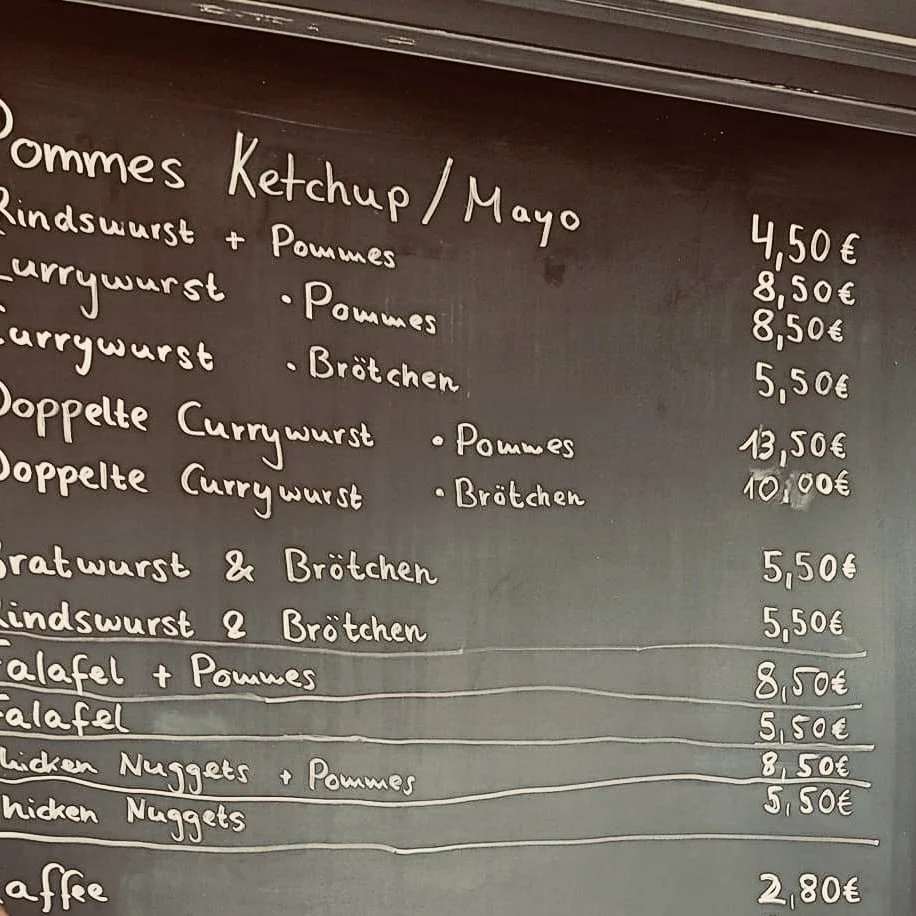 Pommes Ketchup/Mayo 4,50€
Rindswurst + Pommes 8,50€
Currywurst • Pommes 8,50€
Currywurst • Brötchen 5,50€
Doppelte Currywurst • Pommes 13,50€
Doppelte Currywurst • Brötchen 10,00€
Bratwurst & Brötchen 5,50€
Rindswurst & Brötchen 5,50€
Falafel + Pommes 8,50€
Falafel 5,50€
Chicken Nuggets + Pommes 8,50€
Chicken Nuggets 5,50€
Kaffee 2,80€